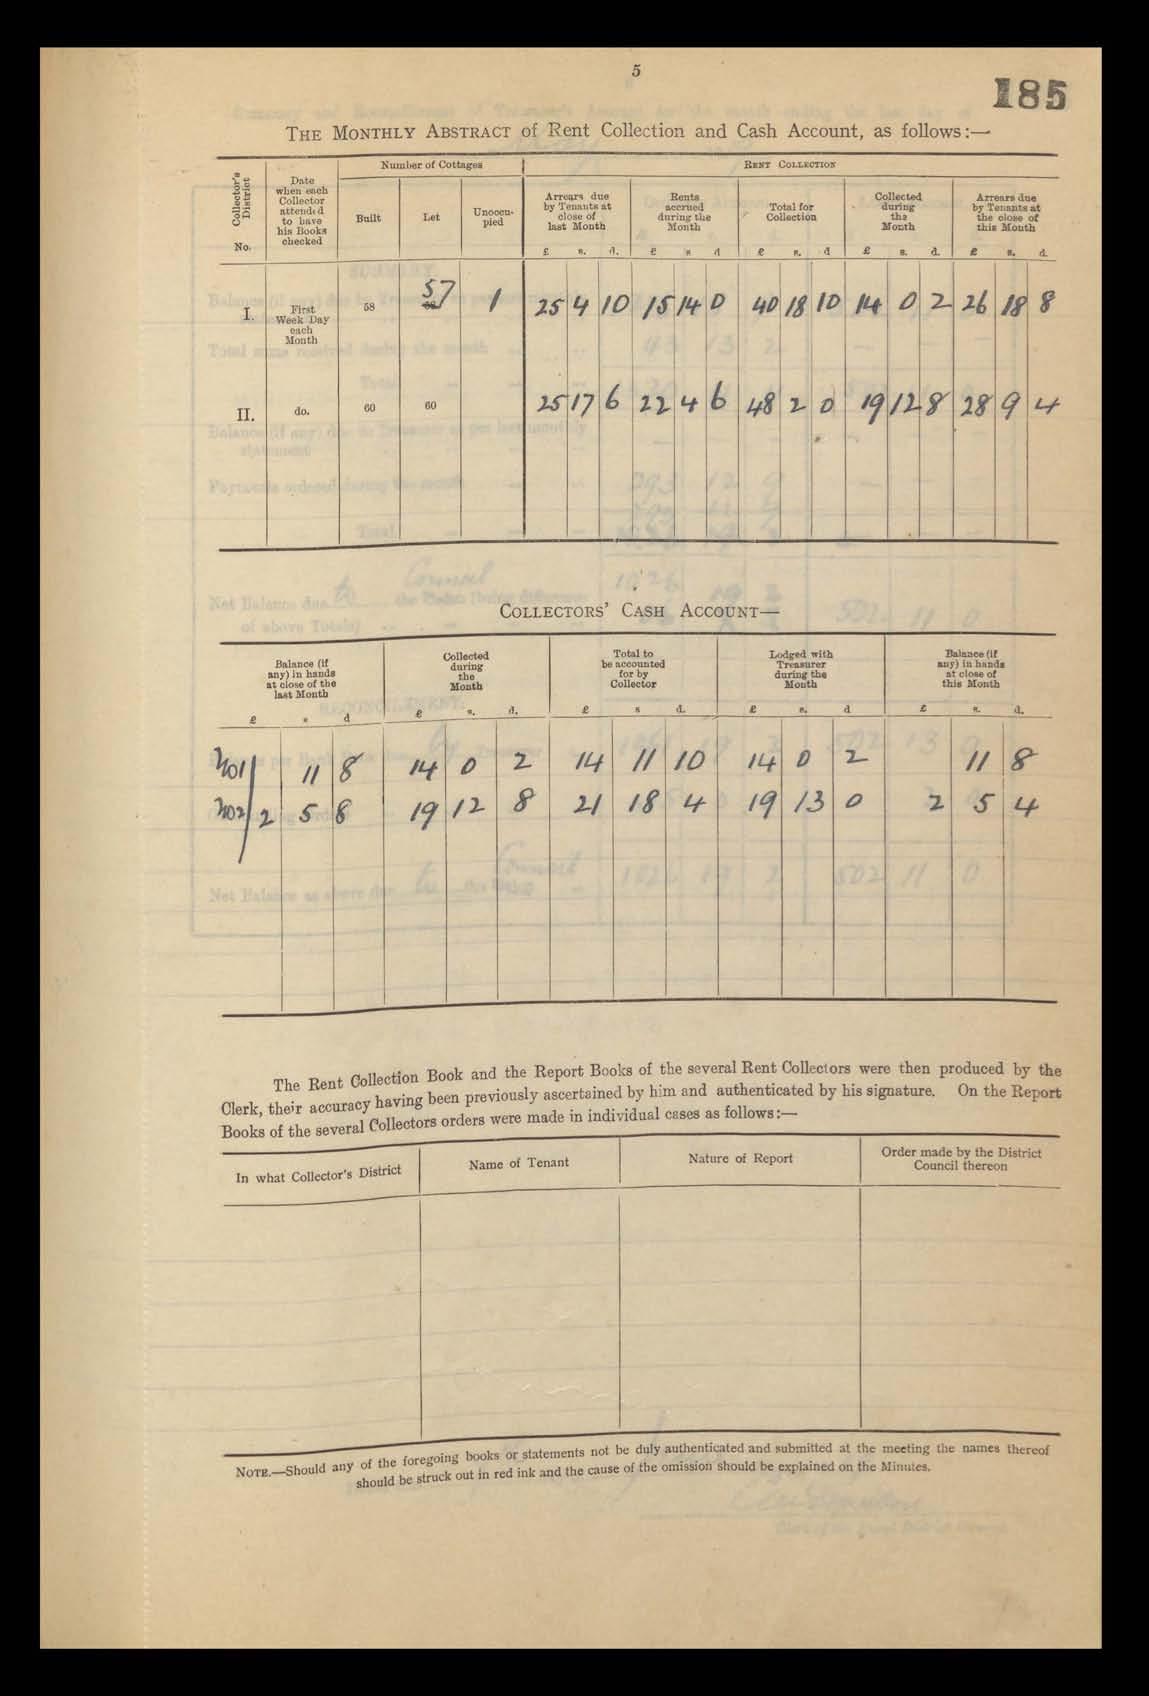 5
185
THE MONTHLY ABSTRACT of Rent Collection and Cash Account, as follows:—
Collector's District No.
Date when each Collector attended to have his Books checked
Number of Cottages
RENT COLLECTION
Built
Let
Unoccupied
Arrears due by Tenants at close of last Month
Rents accrued during the Month
Total for Collection
Collected during the Month
Arrears due by Tenants at the close of this Month
£ s. d. £ s d £ s. d £ s. d. £ s. d.
I. First Week Day each Month 58 57 1 25 4 10 15 14 0 40 18 10 14 0 2 26 18 8
II. do. 60 60 25 17 6 22 4 6 48 2 0 19 12 8 28 9 4
COLLECTORS' CASH ACCOUNT—
Balance (if any) in hands at close of the last Month
Collected during the Month
Total to be accounted for by Collector
Lodged with Treasurer during the Month
Balance (if any) in hands at close of this Month
£ s d £ s. d. £ s d. £ s. d £ s. d.
No1 11 8 14 0 2 14 11 10 14 0 2 11 8
No2 2 5 8 19 12 8 21 18 4 19 13 0 2 5 4
The Rent Collection Book and the Report Books of the several Rent Collectors were then produced by the
Clerk, their accuracy having been previously ascertained by him and authenticated by his signature. On the Report
Books of the several Collectors orders were made in individual cases as follows:—
In what Collector's District
Name of Tenant
Nature of Report
Order made by the District Council thereon
NOTE.—Should any of the foregoing books or statements not be duly authenticated and submitted at the meeting the names thereof
should be struck out in red ink and the cause of the omission should be explained on the Minutes.